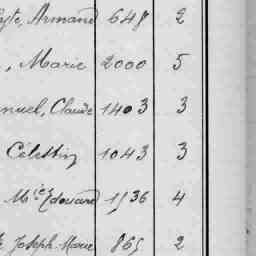 Armand 648 2
, Marie 2000 5
nuel, Claude 1403 3
Célestin 1043 3
Édouard 1536 4
Joseph Marie 865 2